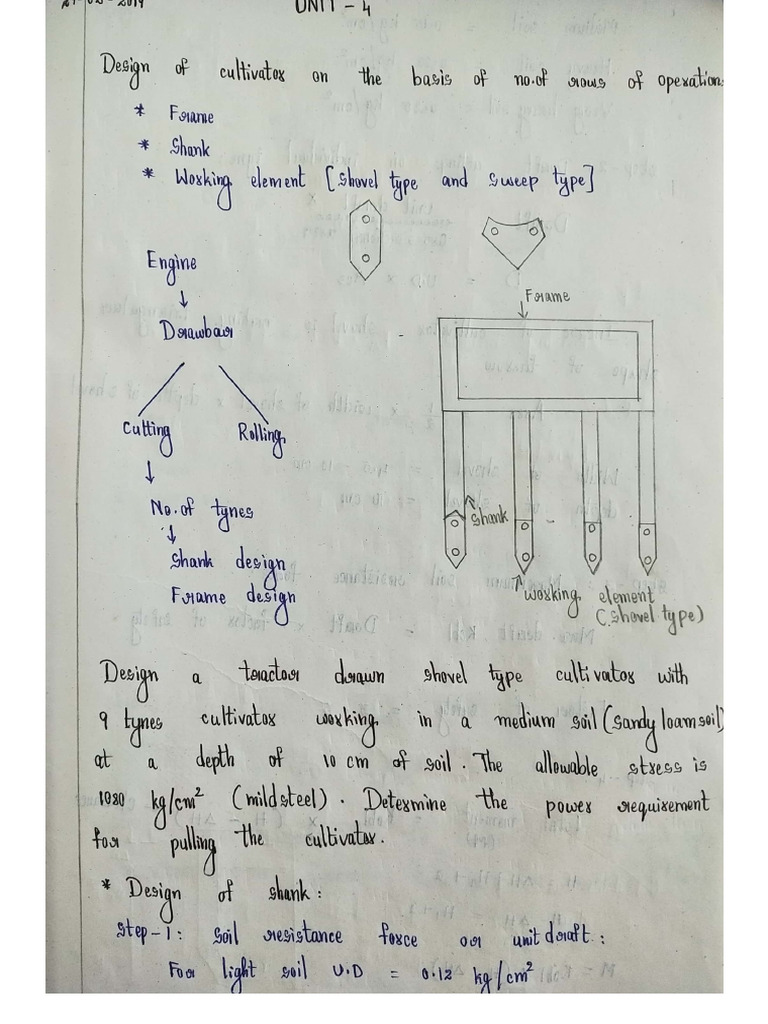 UNIT - 4
Design of cultivator on the basis of no.of rows of operation.
* Frame
* Shank
* Working element [shovel type and sweep type]
Engine
↓
Drawbar
Cutting Rolling
↓
No. of tynes
↓
Shank design
Frame design
Frame
shank
working element
(shovel type)
Design a tractor drawn shovel type cultivator with
9 tynes cultivator working in a medium soil (sandy loam soil)
at a depth of 10 cm of soil. The allowable stress is
1080 kg/cm² (mild steel). Determine the power requirement
for pulling the cultivator.
* Design of shank:
Step-1: Soil resistance force or unit draft:
For light soil U.D = 0.12 kg/cm²